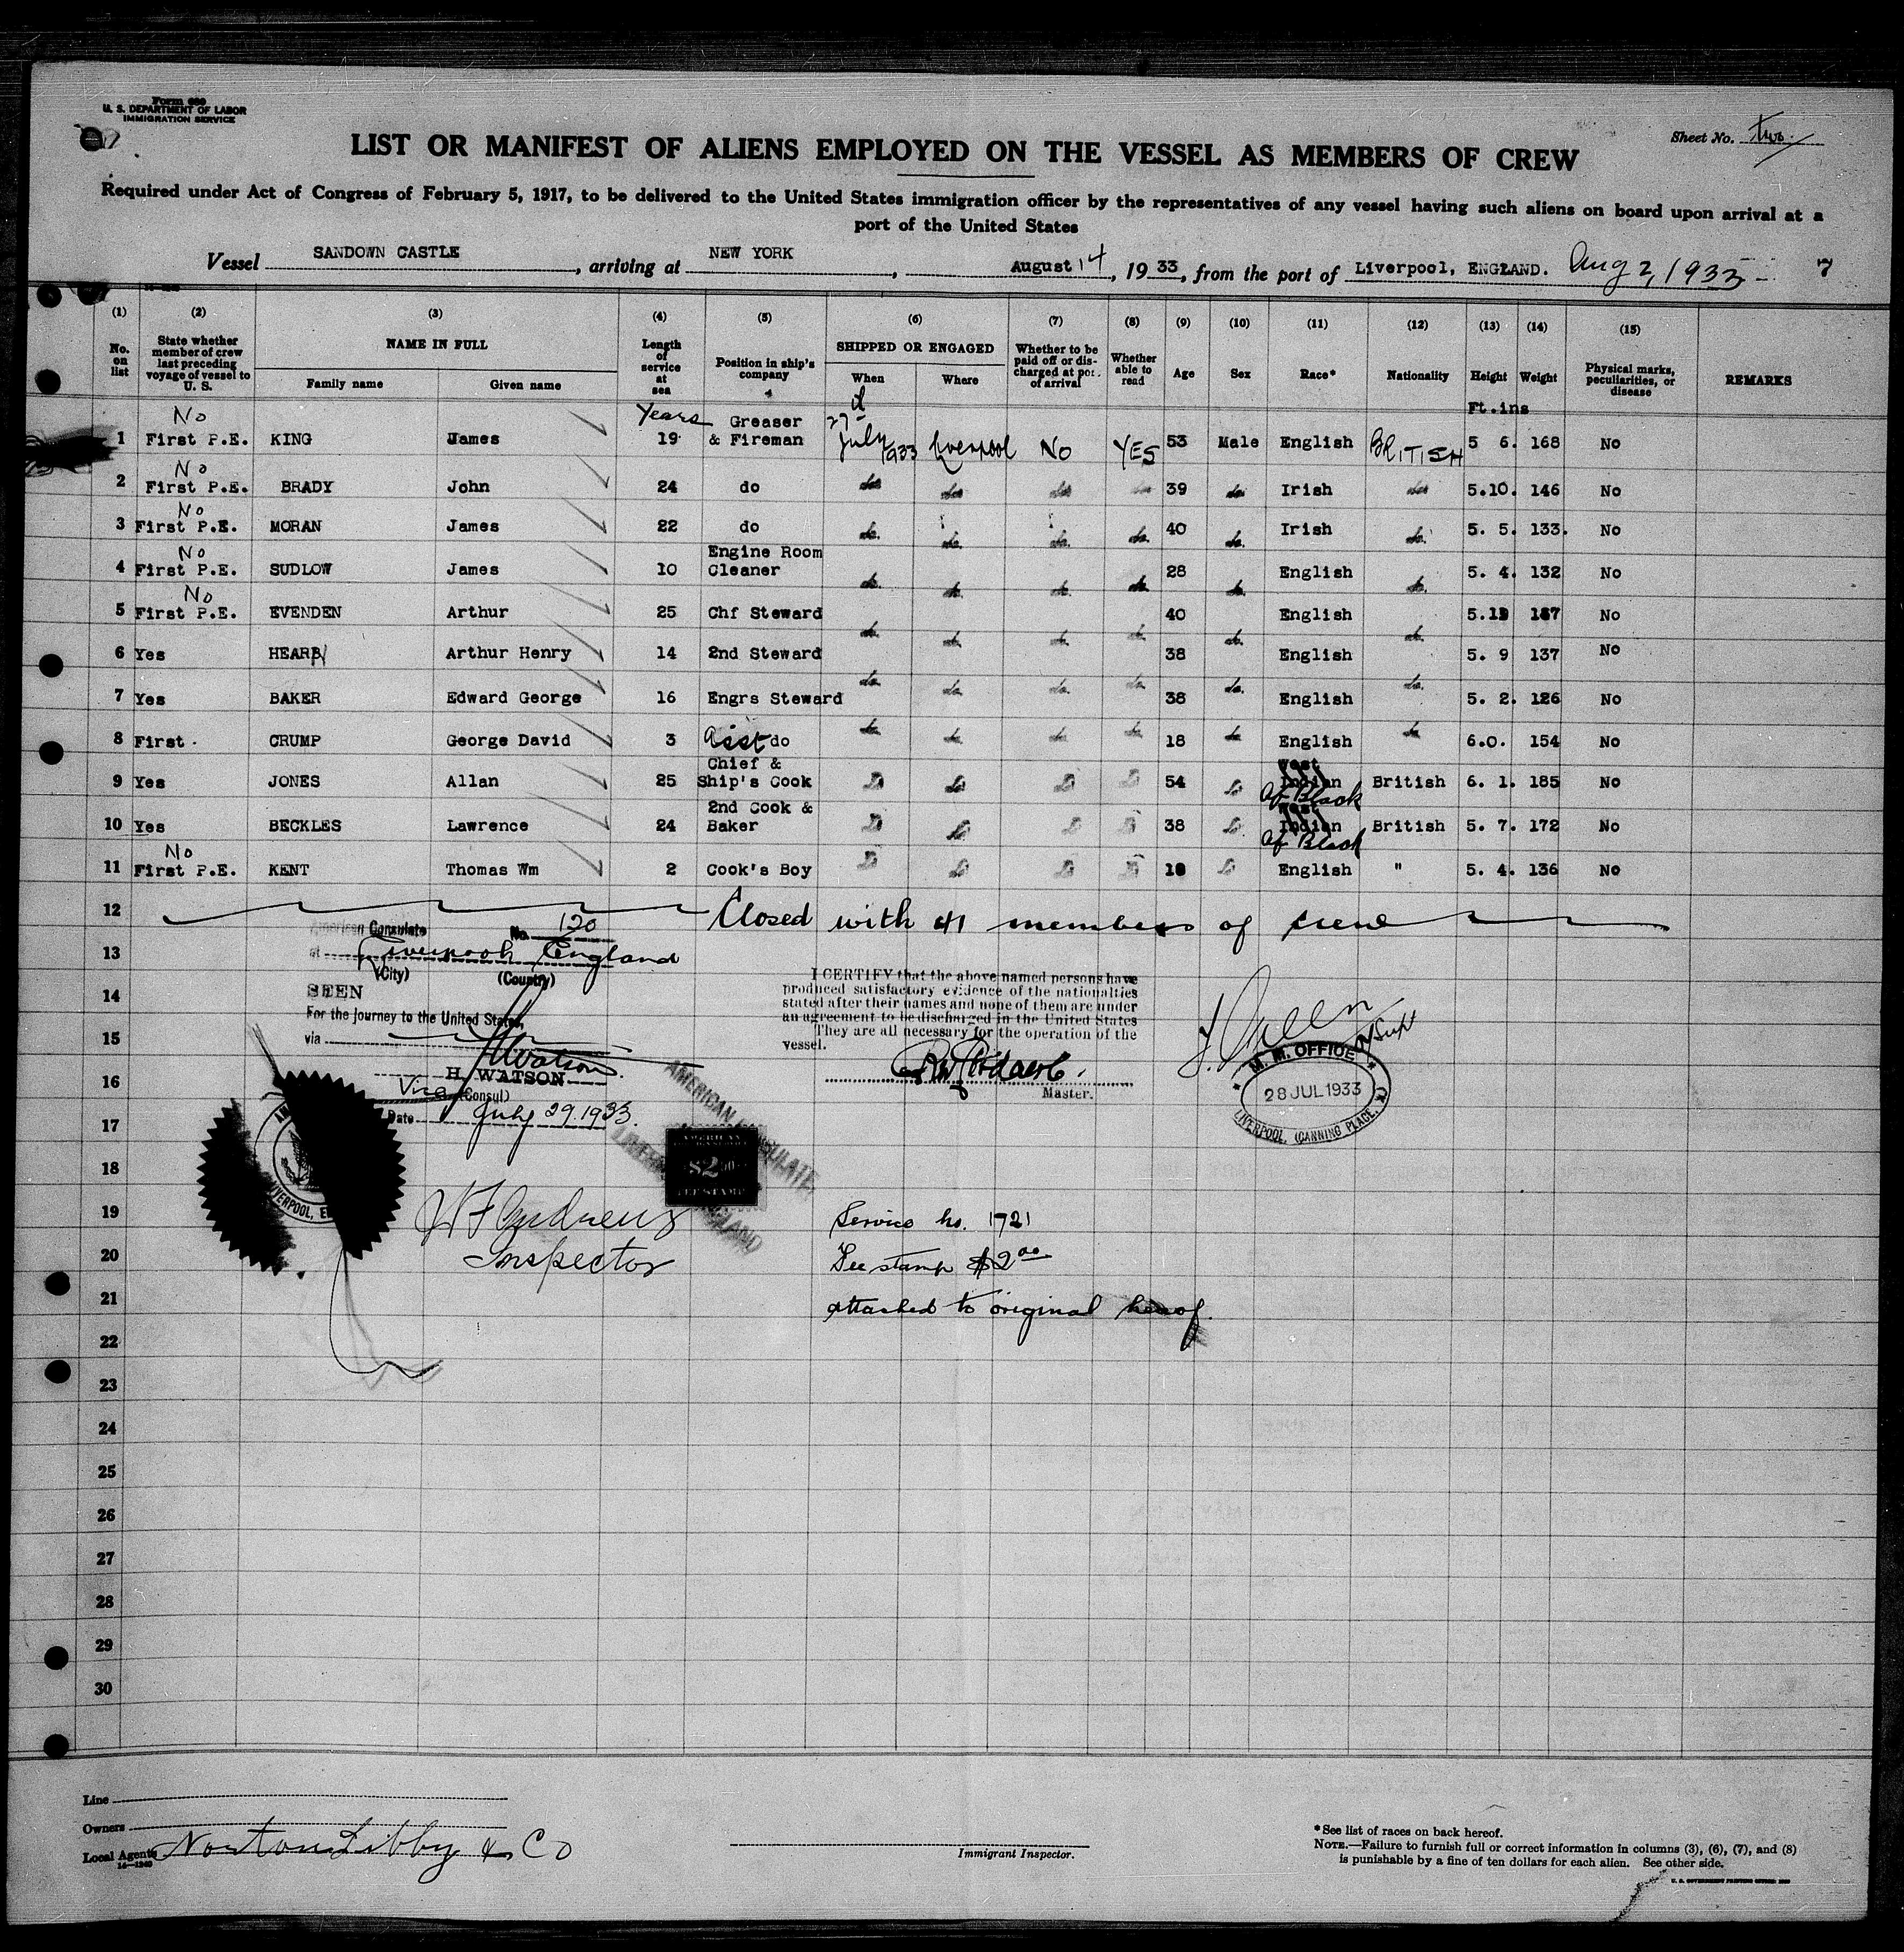 Form 680
U. S. DEPARTMENT OF LABOR
IMMIGRATION SERVICE
Sheet No. two
LIST OR MANIFEST OF ALIENS EMPLOYED ON THE VESSEL AS MEMBERS OF CREW
Required under Act of Congress of February 5, 1917, to be delivered to the United States immigration officer by the representatives of any vessel having such aliens on board upon arrival at a
port of the United States
Vessel SANDOWN CASTLE, arriving at NEW YORK, August 14, 1933, from the port of Liverpool, ENGLAND. Aug 2, 1933 7
(1) (2) (3) (4) (5) (6) (7) (8) (9) (10) (11) (12) (13) (14) (15)
No. on list
State whether member of crew last preceding voyage of vessel to U. S.
NAME IN FULL
Family name Given name
Length of service at sea
Position in ship's company
SHIPPED OR ENGAGED
When Where
Whether to be paid off or discharged at port of arrival
Whether able to read
Age Sex Race* Nationality Height Weight
Physical marks, peculiarities, or disease
REMARKS
No Years Greaser 27th Ft.ins
1 First P.E. KING James 19 & Fireman July 1933 Liverpool No YES 53 Male English BRITISH 5 6. 168 No
No
2 First P.E. BRADY John 24 do do do do do 39 do Irish do 5.10. 146 No
No
3 First P.E. MORAN James 22 do do do do do 40 do Irish do 5. 5. 133. No
No Engine Room
4 First P.E. SUDLOW James 10 Cleaner do do do do 28 do English do 5. 4. 132 No
No
5 First P.E. EVENDEN Arthur 25 Chf Steward do do do do 40 do English do No
6 Yes Arthur Henry 14 2nd Steward do do do do 38 do English do 5. 9 137 No
7 Yes BAKER Edward George 16 Engrs Steward do do do do 38 do English do 5. 2. 126 No
8 First. CRUMP George David 3 Asst do do do do do 18 do English do 6.0. 154 No
Chief & West
9 Yes JONES Allan 25 Ship's Cook do do do do 54 do Indian British 6. 1. 185 No
Af Black
2nd Cook & West
10 Yes BECKLES Lawrence 24 Baker do do do do 38 do Indian British 5. 7. 172 No
Af Black
No
11 First P.E. KENT Thomas Wm 2 Cook's Boy do do do do do English " 5. 4. 136 No
12 Closed with 41 members of crew
13
14
15
16
17
18
19
20
21
22
23
24
25
26
27
28
29
30
American Consulate No. 120
at Liverpool England
(City) (Country)
SEEN
For the journey to the United States,
via
H. WATSON
Vice (Consul)
Date July 29. 1933.
I CERTIFY that the above named persons have
produced satisfactory evidence of the nationalities
stated after their names and none of them are under
an agreement to be discharged in the United States
They are all necessary for the operation of the
vessel.
Master.
M. M. OFFICE
28 JUL 1933
LIVERPOOL, (CANNING PLACE.)
AMERICAN CONSULATE
LIVERPOOL, ENGLAND
AMERICAN
$2.00
FEE STAMP
LIVERPOOL, E
Inspector
Service No. 1721
Fee stamp $2.00
attached to original hereof.
Line
Owners
Local Agents Norton Libby & Co
14—1240
Immigrant Inspector.
*See list of races on back hereof.
NOTE.—Failure to furnish full or correct information in columns (3), (6), (7), and (8)
is punishable by a fine of ten dollars for each alien. See other side.